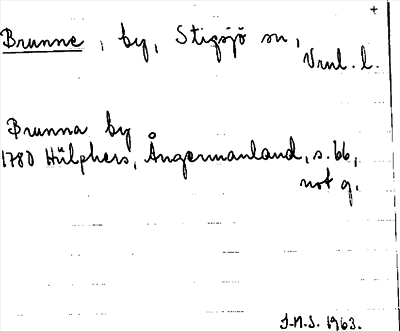 +
Brunne, by, Stigsjö sn,
Vnnl. l.
Brunna by
1780 Hülphers, Ångermanland, s. 66,
not q.
J.N.S. 1963.